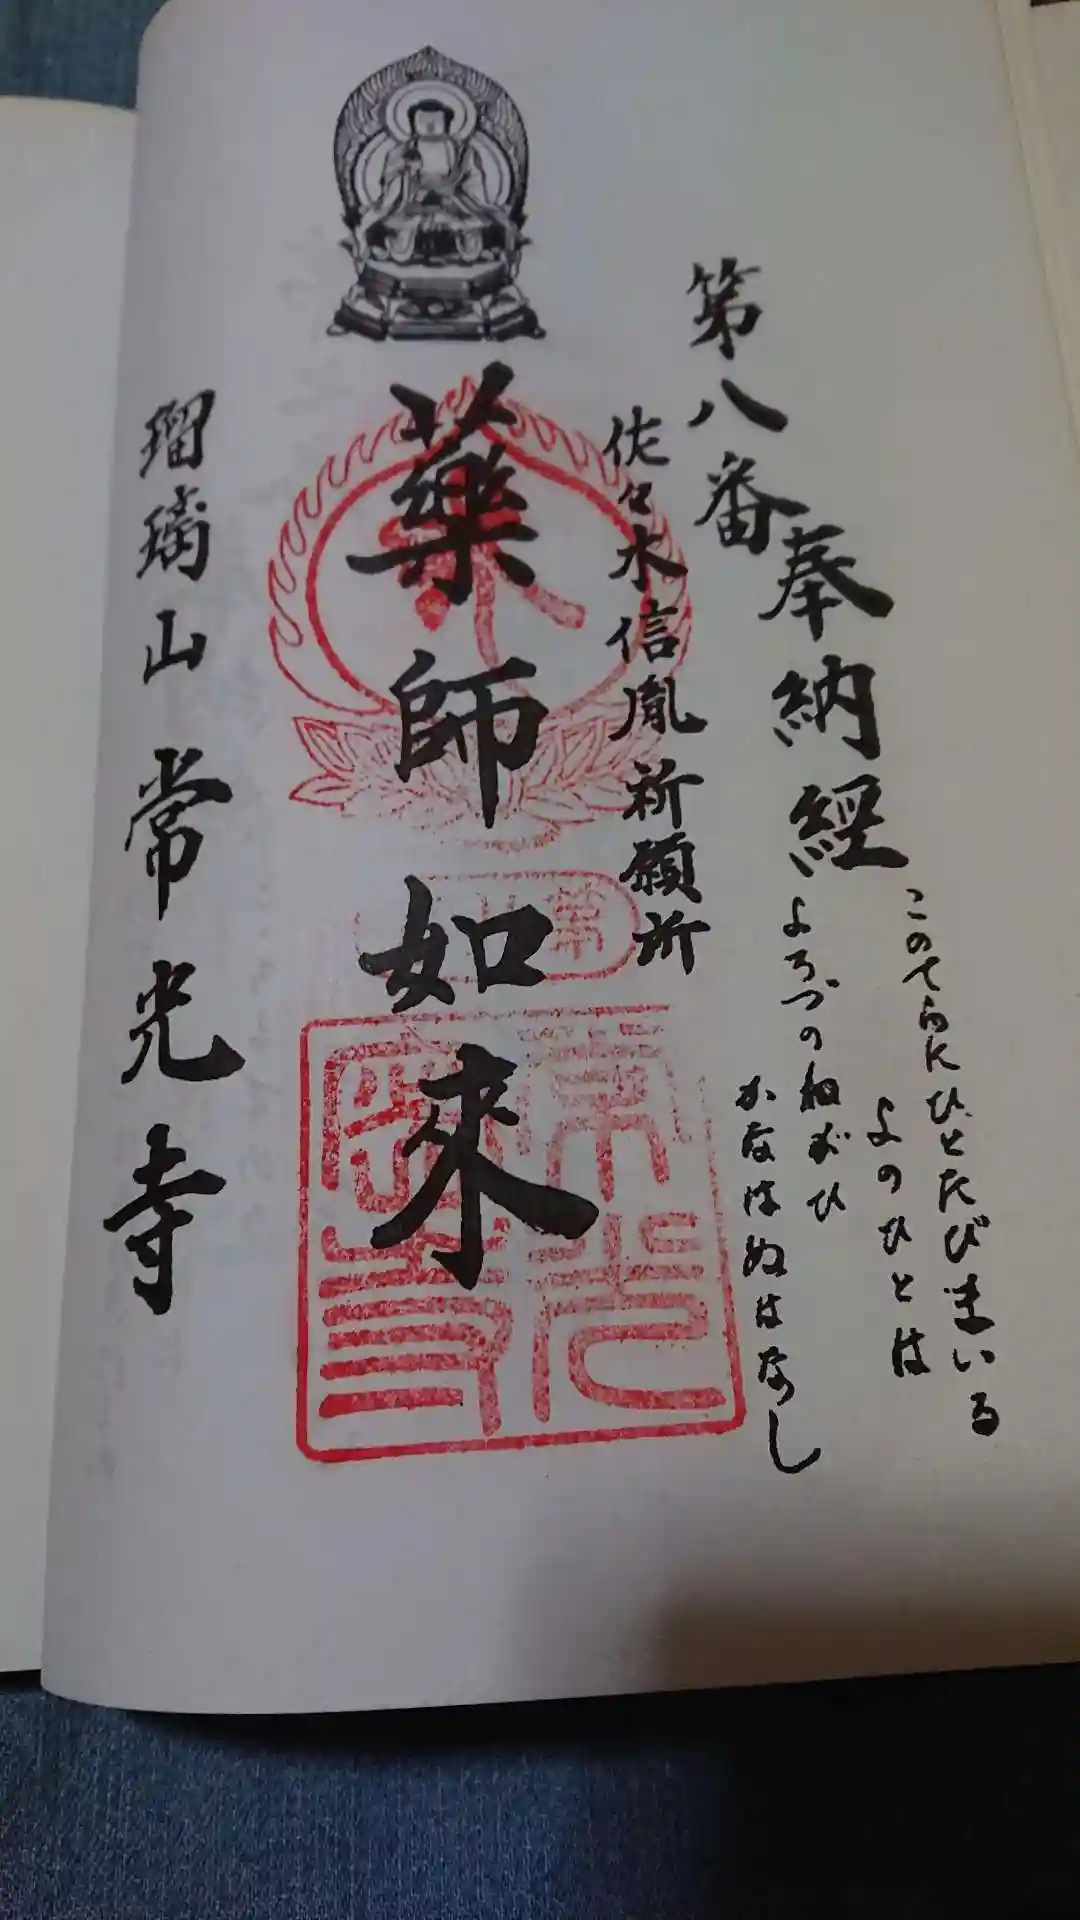 このてらにひとたびまいる
よのひとは
よろづのねがひ
かなはぬはなし
奉納經
第八番
佐々木信胤祈願所
藥師如来
瑠璃山 常光寺